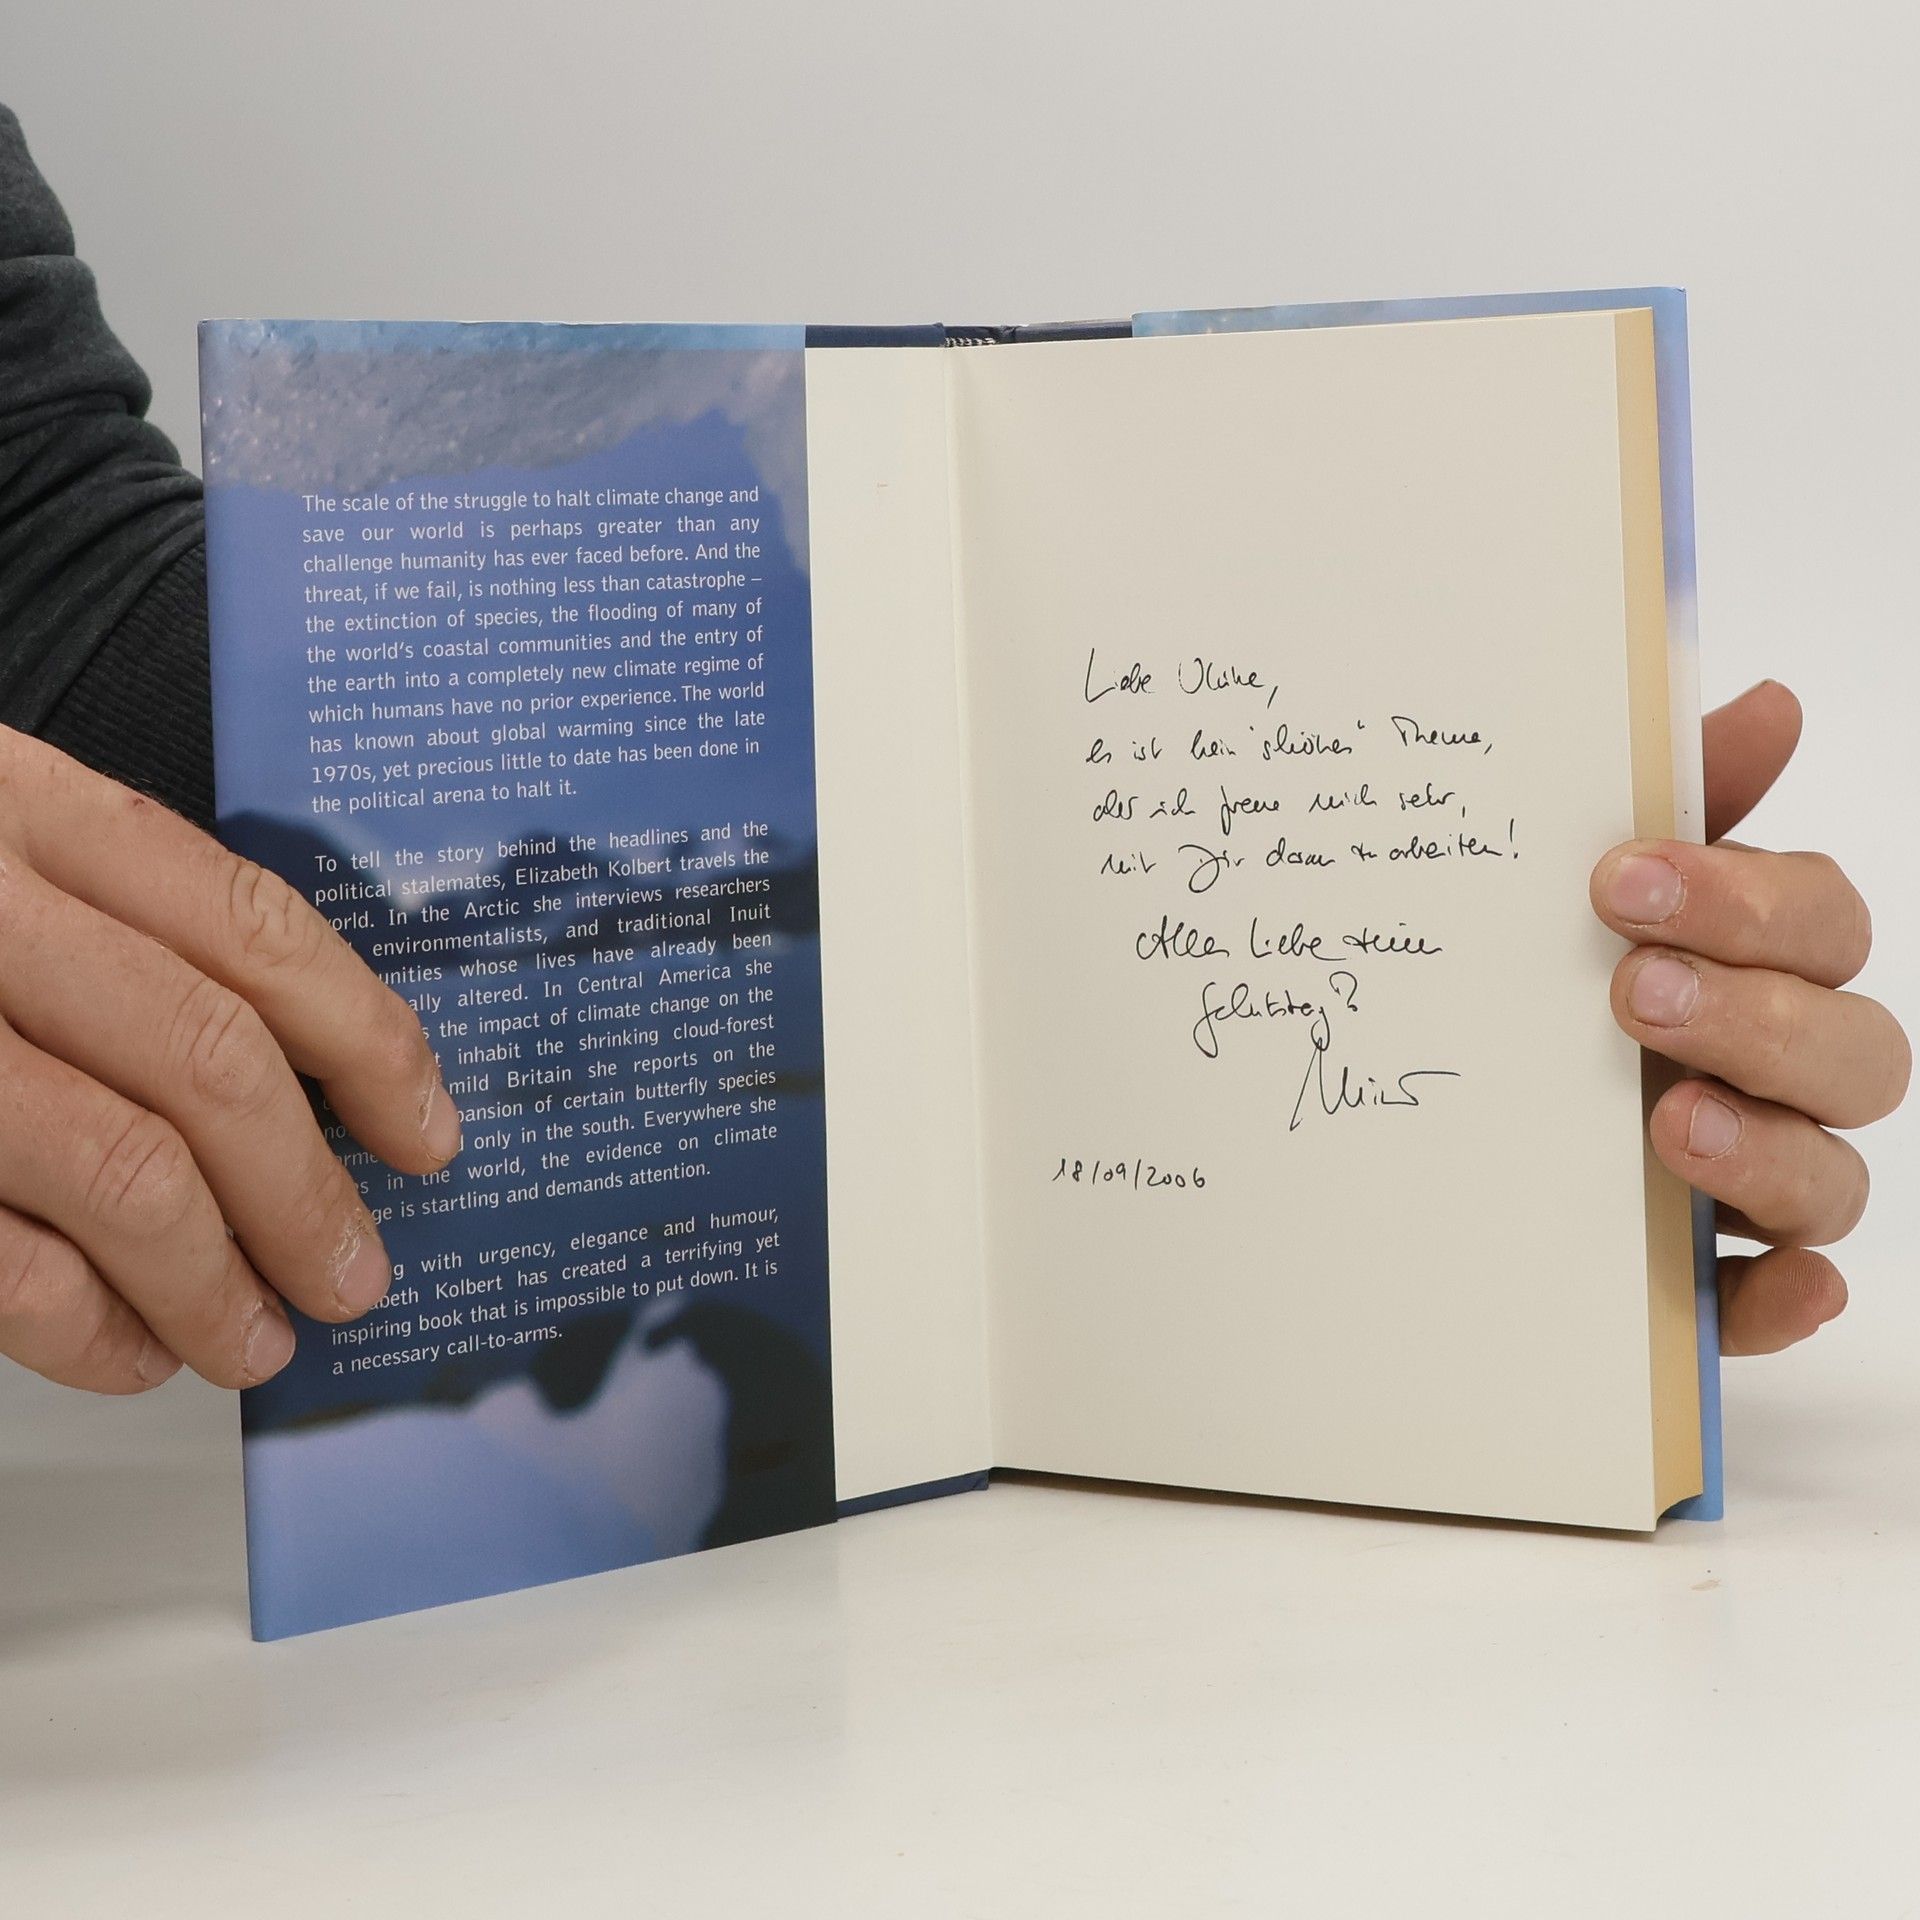 The scale of the struggle to halt climate change and
save our world is perhaps greater than any
challenge humanity has ever faced before. And the
threat, if we fail, is nothing less than catastrophe –
the extinction of species, the flooding of many of
the world's coastal communities and the entry of
the earth into a completely new climate regime of
which humans have no prior experience. The world
has known about global warming since the late
1970s, yet precious little to date has been done in
the political arena to halt it.
To tell the story behind the headlines and the
political stalemates, Elizabeth Kolbert travels the
orld. In the Arctic she interviews researchers
environmentalists, and traditional Inuit
unities whose lives have already been
ally altered. In Central America she
s the impact of climate change on the
t inhabit the shrinking cloud-forest
mild Britain she reports on the
no pansion of certain butterfly species
arme only in the south. Everywhere she
s in the world, the evidence on climate
ge is startling and demands attention.
g with urgency, elegance and humour,
abeth Kolbert has created a terrifying yet
inspiring book that is impossible to put down. It is
a necessary call-to-arms.
Liebe Ulrike,
es ist kein "schönes" Thema,
aber ich freue mich sehr,
mit Dir daran zu arbeiten!
Alles Liebe zum
Geburtstag
18/09/2006